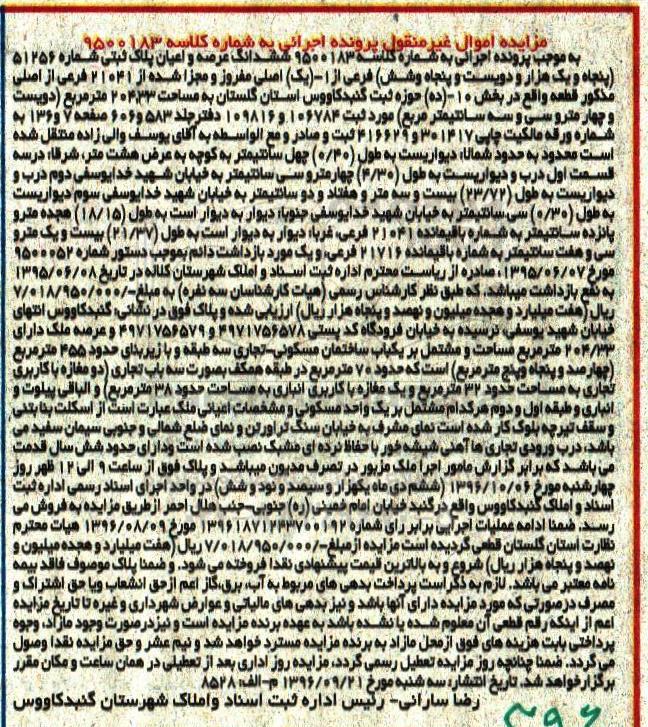 مزایده اموال غیرمنقول پرونده اجرائی به شماره کلاسه ۹۵۰۰۱۸۳
به موجب پرونده اجرائی به شماره کلاسه ۹۵۰۰۱۸۳ ششدانگ عرصه و اعیان پلاک ثبتی شماره ۵۱۲۵۶
(پنجاه و یک هزار و دویست و پنجاه وشش) فرعی از ۱-(یک) اصلی مفروز و مجزا شده از ۲۱۰۴۱ فرعی از اصلی
مذکور قطعه واقع در بخش ۱۰-(ده) حوزه ثبت گنبدکاووس استان گلستان به مساحت ۲۰۴.۳۳ مترمربع (دویست
و چهار مترو سی و سه سانتیمتر مربع) مورد ثبت ۱۰۶۷۸۴ و ۱۰۹۸۱۶ دفترجلد ۵۸۳ و ۶۰۶ صفحه ۷ و ۱۳۶ به
شماره ورقه مالکیت چاپی ۳۰۱۴۱۷ و ۴۱۶۶۲۹ ثبت و صادر و مع الواسطه به آقای یوسف والی زاده منتقل شده
است محدود به حدود شمالا، دیواریست به طول (۰/۴۰) چهل سانتیمتر به کوچه به عرض هشت متر، شرقا، درسه
قسمت اول درب و دیواریست به طول (۴/۳۰) چهارمترو سی سانتیمتر به خیابان شهید خدایوسفی دوم درب و
دیواریست به طول (۲۳/۷۲) بیست و سه متر و هفتاد و دو سانتیمتر به خیابان شهید خدایوسفی سوم دیواریست
به طول (۰/۳۰) سی سانتیمتر به خیابان شهید خدایوسفی جنوبا، دیوار به دیوار است به طول (۱۸/۱۵) هجده مترو
پانزده سانتیمتر به شماره باقیمانده ۲۱۰۴۱ فرعی، غربا، دیوار به دیوار است به طول (۲۱/۳۷) بیست و یک مترو
سی و هفت سانتیمتر به شماره باقیمانده ۲۱۷۱۶ فرعی، و یک مورد بازداشت دائم بموجب دستور شماره ۹۵۰۰۰۵۲
مورخ ۱۳۹۵/۰۶/۰۷، صادره از ریاست محترم اداره ثبت اسناد و املاک شهرستان کلاله در تاریخ ۱۳۹۵/۰۶/۰۸
به نفع بازداشت میباشد. که طبق نظر کارشناس رسمی (هیات کارشناسان سه نفره) به مبلغ-/۷/۰۱۸/۹۵۰/۰۰۰
ریال (هفت میلیارد و هجده میلیون و نهصد و پنجاه هزار ریال) ارزیابی شده و پلاک فوق در نشانی، گنبدکاووس انتهای
خیابان شهید یوسفی، نرسیده به خیابان فرودگاه کد پستی ۴۹۷۱۷۵۶۵۷۸ و ۴۹۷۱۷۵۶۵۷۹ و عرصه ملک دارای
۲۰۴/۳۳ مترمربع مساحت و مشتمل بر یکباب ساختمان مسکونی-تجاری سه طبقه و با زیربنای حدود ۴۵۵ مترمربع
(چهارصد و پنجاه وپنج مترمربع) است که حدود ۷۰ مترمربع در طبقه همکف بصورت سه باب تجاری (دو مغازه با کاربری
تجاری به مساحت حدود ۳۲ مترمربع و یک مغازه با کاربری انباری به مساحت حدود ۳۸ مترمربع) و الباقی پیلوت و
انباری و طبقه اول و دوم هرکدام مشتمل بر یک واحد مسکونی و مشخصات اعیانی ملک عبارت است از اسکلت بنا بتنی
و سقف تیرچه بلوک کار شده است نمای مشرف به خیابان سنگ تراورتن و نمای ضلع شمالی و جنوبی سیمان سفید می
باشد، درب ورودی تجاری ها آهنی شیشه خور با حفاظ نرده ای مشبک نصب شده است ودارای حدود شش سال قدمت
می باشد که برابر گزارش مامور اجرا ملک مزبور در تصرف مدیون میباشد و پلاک فوق از ساعت ۹ الی ۱۲ ظهر روز
چهارشنبه مورخ ۱۳۹۶/۱۰/۰۶ (ششم دی ماه یکهزار و سیصد و نود و شش) در واحد اجرای اسناد رسمی اداره ثبت
اسناد و املاک گنبدکاووس واقع در گنبد خیابان امام خمینی (ره) جنوبی-جنب هلال احمر ازطریق مزایده به فروش می
رسد. ضمنا ادامه عملیات اجرایی برابر رای شماره ۱۳۹۶۱۸۷۱۲۴۳۷۰۰۱۹۲ مورخ ۱۳۹۶/۰۸/۰۹ هیات محترم
نظارت استان گلستان قطعی گردیده است مزایده ازمبلغ-/۷/۰۱۸/۹۵۰/۰۰۰ ریال (هفت میلیارد و هجده میلیون و
نهصد و پنجاه هزار ریال) شروع و به بالاترین قیمت پیشنهادی نقدا فروخته می شود. و ضمنا پلاک موصوف فاقد بیمه
نامه معتبر می باشد. لازم به ذکر است پرداخت بدهی های مربوط به آب، برق،گاز اعم ازحق انشعاب ویا حق اشتراک و
مصرف درصورتی که مورد مزایده دارای آنها باشد و نیز بدهی های مالیاتی و عوارض شهرداری و غیره تا تاریخ مزایده
اعم از اینکه رقم قطعی آن معلوم شده یا نشده باشد به عهده برنده مزایده است و نیزدرصورت وجود مازاد، وجوه
پرداختی بابت هزینه های فوق ازمحل مازاد به برنده مزایده مسترد خواهد شد و نیم عشر و حق مزایده نقدا وصول
می گردد. ضمنا چنانچه روز مزایده تعطیل رسمی گردد، مزایده روز اداری بعد از تعطیلی در همان ساعت و مکان مقرر
برگزار خواهد شد. تاریخ انتشار: سه شنبه مورخ ۱۳۹۶/۰۹/۲۱ م-الف: ۸۵۲۸
رضا سارانی- رئیس اداره ثبت اسناد واملاک شهرستان گنبدکاووس